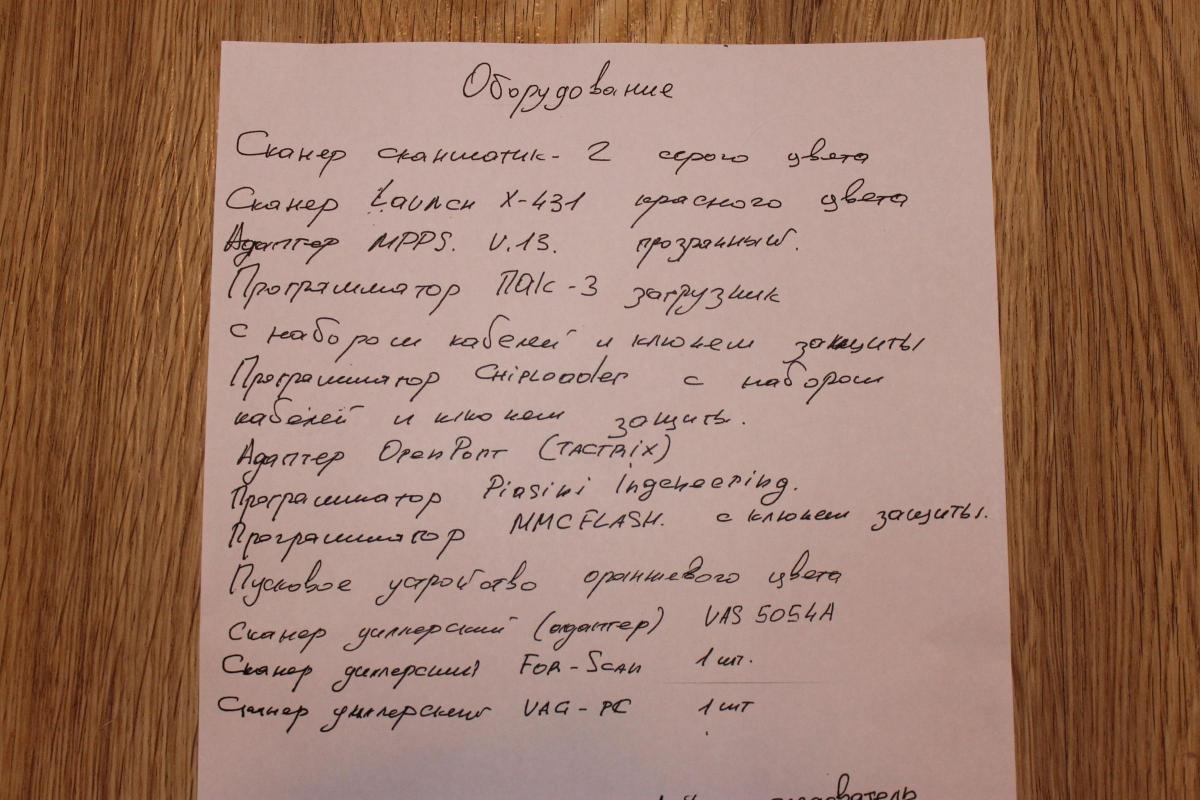 Оборудование
Сканер сканматик- 2 серого цвета
Сканер Launch X-431 красного цвета
Адаптер MPPS. V.13. прозрачный.
Программатор ПАК-3 загрузчик
с набором кабелей и ключем защиты
Программатор Chiploader с набором
кабелей и ключем защиты.
Адаптер OpenPort (TACTRIX)
Программатор Piasini Ingeneering.
Программатор MMCFLASH. с ключем защиты.
Пусковое устройство оранжевого цвета
Сканер диллерский (адаптер) VAS 5054A
Сканер диллерский FOR-SCAN 1 шт.
Сканер диллерский VAG-PC 1 шт